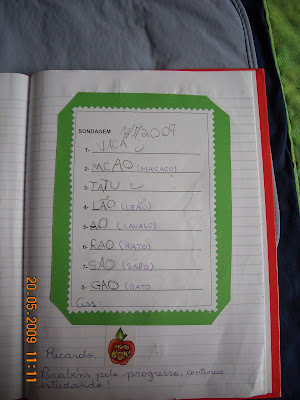 SONDAGEM 13/5/2009
1- VACA
2- MCAO (MACACO)
3- TATU
4- LÃO (LEÃO)
5- AO (CAVALO)
6- RAO (RATO)
7- SAO (SAPO)
8- GAO (GATO
Ass:
Ricardo,
Parabéns pelo progresso, continue
estudando!
20.05.2009 11:11